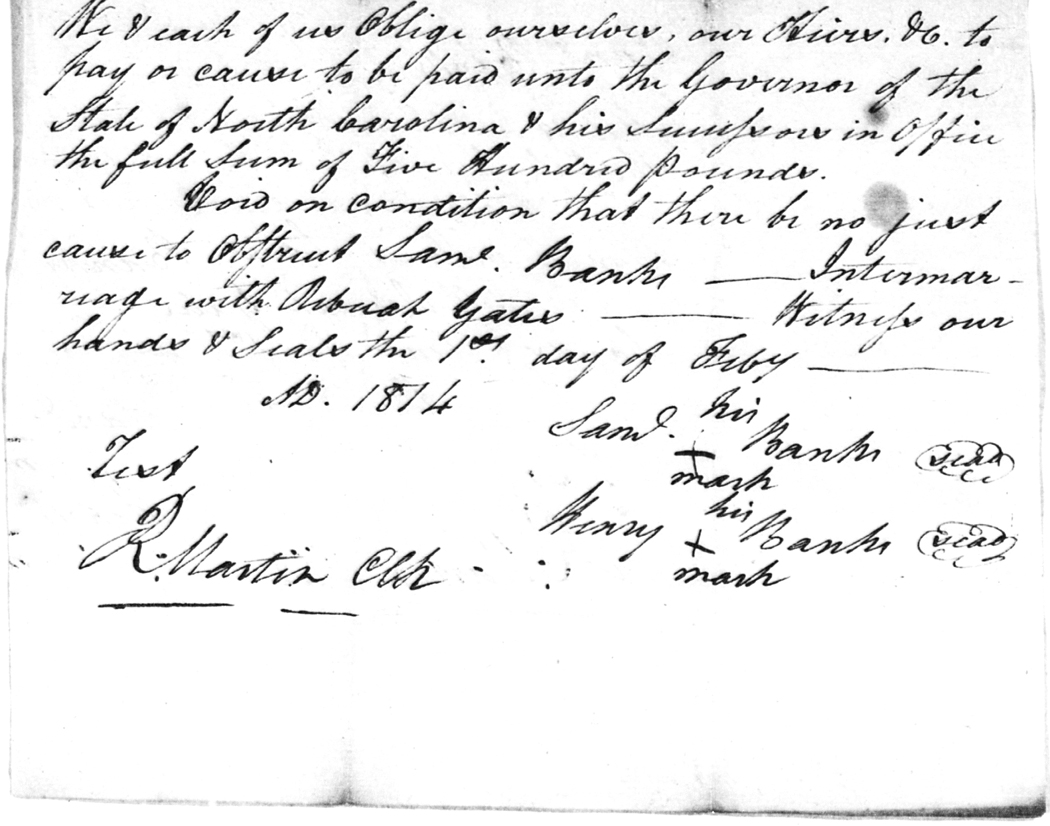 We & each of us Oblige ourselves, our Hiers. &C. to
pay or cause to be paid unto the Governor of the
State of North Carolina & his Successors in Office
the full Sum of Five Hundred pounds.
Void on condition that there be no just
cause to Obstruct Saml. Banks — Intermar-
riage with Rebecah Yates — Witness our
hands & Seals the 1st day of Feby —
AD. 1814
his
Saml. + Banks seal
mark
Test
his
Henry + Banks seal
mark
R. Martin Clk